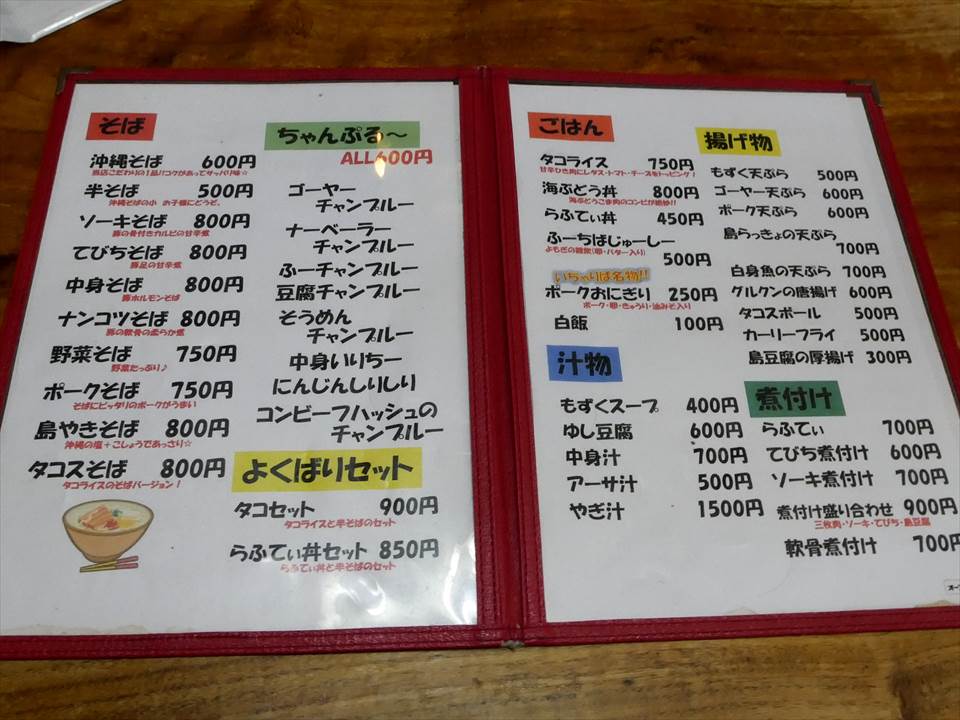 そば
沖縄そば 600円
当店こだわりの1品!!コクがあってサッパリ味☆
半そば 500円
沖縄そばの小 お子様にどうぞ。
ソーキそば 800円
豚の骨付きカルビの甘辛煮
てびちそば 800円
豚足の甘辛煮
中身そば 800円
豚ホルモンそば
ナンコツそば 800円
豚の軟骨の柔らか煮
野菜そば 750円
野菜たっぷり♪
ポークそば 750円
そばにピッタリのポークがうまい
島やきそば 800円
沖縄の塩+こしょうであっさり☆
タコスそば 800円
タコライスのそばバージョン!
ちゃんぷる～
ALL600円
ゴーヤー
チャンプルー
ナーベーラー
チャンプルー
ふーチャンプルー
豆腐チャンプルー
そうめん
チャンプルー
中身いりちー
にんじんしりしり
コンビーフハッシュの
チャンプルー
よくばりセット
タコセット 900円
タコライスと半そばのセット
らふてぃ丼セット 850円
らふてぃ丼と半そばのセット
ごはん
タコライス 750円
甘辛ひき肉にレタス・トマト・チーズをトッピング!
海ぶどう丼 800円
海ぶどうごま肉のコンビが絶妙!!
らふてぃ丼 450円
ふーちばじゅーしー
よもぎの雑炊(卵・バター入り)
500円
いちゃりば名物!!
ポークおにぎり 250円
ポーク・卵・きゅうり・油みそ入り
白飯 100円
汁物
もずくスープ 400円
ゆし豆腐 600円
中身汁 700円
アーサ汁 500円
やぎ汁 1500円
揚げ物
もずく天ぷら 500円
ゴーヤー天ぷら 600円
ポーク天ぷら 600円
島らっきょの天ぷら
700円
白身魚の天ぷら 700円
グルクンの唐揚げ 600円
タコスボール 500円
カーリーフライ 500円
島豆腐の厚揚げ 300円
煮付け
らふてぃ 700円
てびち煮付け 600円
ソーキ煮付け 700円
煮付け盛り合わせ 900円
三枚肉・ソーキ・てびち・島豆腐
軟骨煮付け 700円